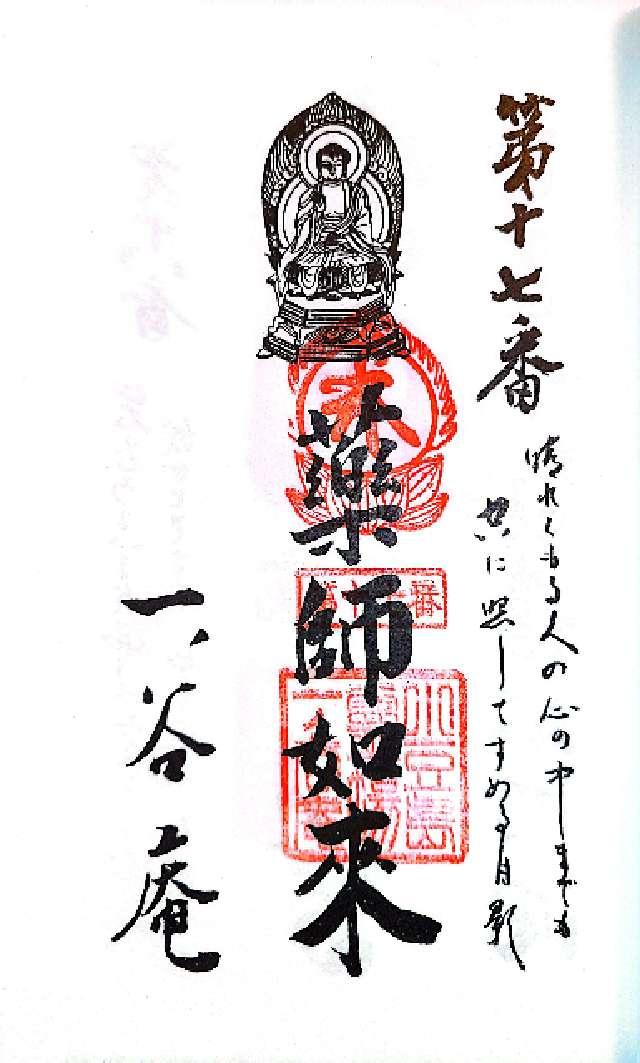 第十七番
晴れくもる人の心の中までも
共に照してすめる月影
藥師如來
小豆島
霊場
一ノ谷庵